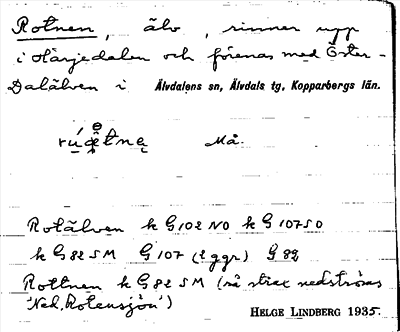 Rotnen, älv, rinner upp
i Härjedalen och förenas med Öster-
Dalälven i Älvdalens sn, Älvdals tg, Kopparbergs län.
Må.
Rotälven k G102 NO k G107 SO
k G82 SM G107 (2 ggr) G82
Rottnen k G82 SM (så strax nedströms
"Ned. Rotensjön")
HELGE LINDBERG 1935.